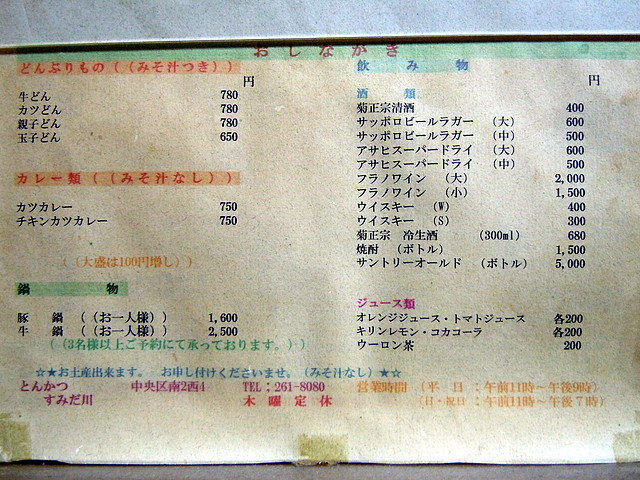 おしながき
どんぶりもの((みそ汁つき))
円
牛どん 780
カツどん 780
親子どん 780
玉子どん 650
カレー類((みそ汁なし))
カツカレー 750
チキンカツカレー 750
((大盛は100円増し))
鍋 物
豚 鍋 ((お一人様)) 1,600
牛 鍋 ((お一人様)) 2,500
((3名様以上ご予約にて承っております。))
飲 み 物
円
酒 類
菊正宗清酒 400
サッポロビールラガー (大) 600
サッポロビールラガー (中) 500
アサヒスーパードライ (大) 600
アサヒスーパードライ (中) 500
フラノワイン (大) 2,000
フラノワイン (小) 1,500
ウイスキー (W) 400
ウイスキー (S) 300
菊正宗 冷生酒 (300ml) 680
焼酎 (ボトル) 1,500
サントリーオールド (ボトル) 5,000
ジュース類
オレンジジュース・トマトジュース 各200
キリンレモン・コカコーラ 各200
ウーロン茶 200
☆★お土産出来ます。 お申し付けくださいませ。(みそ汁なし)★☆
とんかつ 中央区南2西4 TEL:261-8080 営業時間 (平 日 :午前11時~午後9時)
すみだ川 木 曜 定 休 (日・祝日 :午前11時~午後7時)